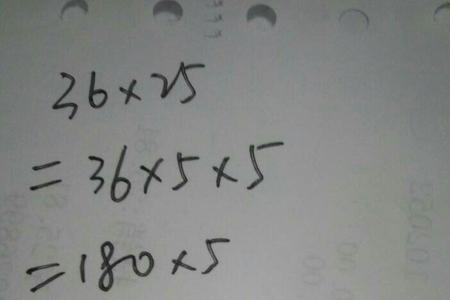 36×25
=36×5×5
=180×5